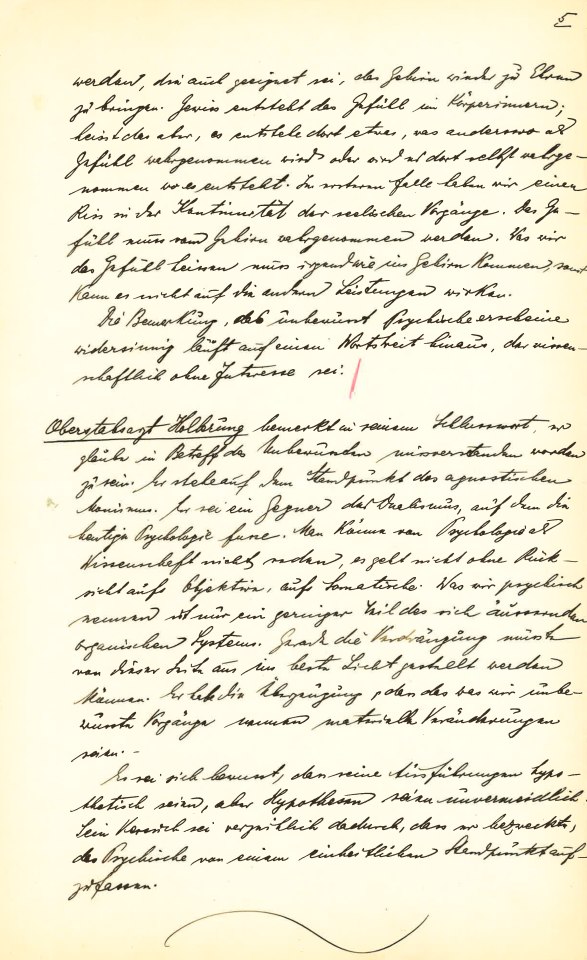 5
werden, die auch geeignet sei, das Gehirn wieder zu Ehren
zu bringen. Gewiss entsteht das Gefühl im Körperinnern;
heisst das aber, es entstehe dort etwas, was anderswo als
Gefühl wahrgenommen wird oder wird es dort selbst wahrge-
nommen wo es entsteht. Im ersteren Falle haben wir einen
Riss in der Kontinuität der seelischen Vorgänge. Das Ge-
fühl muss vom Gehirn wahrgenommen werden. Was wir
das Gefühl heissen muss irgendwie ins Gehirn kommen, sonst
kann es nicht auf die andern Leistungen wirken.
Die Bemerkung, das unbewusst Psychische erscheine
widersinnig läuft auf einen Wortstreit hinaus, der wissen-
schaftlich ohne Interesse sei.
Oberstabsarzt Holbrung bemerkt in seinem Schlusswort, er
glaube in Betreff des Unbewussten missverstanden worden
zu sein. Er stehe auf dem Standpunkt des agnostischen
Monismus. Er sei ein Gegner des Dualismus, auf dem die
heutige Psychologie fusse. Man könne von Psychologie als
Wissenschaft nicht reden, es geht nicht ohne Rück-
sicht aufs Objektive, aufs Somatische. Was wir psychisch
nennen ist nur ein geringer Teil des sich äussernden
organischen Systems. Gerade die Verdrängung müsste
von dieser Seite aus ins beste Licht gestellt werden
können. Er habe die Überzeugung, dass das was wir unbe-
wusste Vorgänge nennen materielle Veränderungen
seien. -
Er sei sich bewusst, dass seine Ausführungen hypo-
thetisch seien, aber Hypothesen seien unvermeidlich.
Sein Versuch sei verzeihlich dadurch, dass er bezweckte,
das Psychische von einem einheitlichen Standpunkt auf-
zufassen.